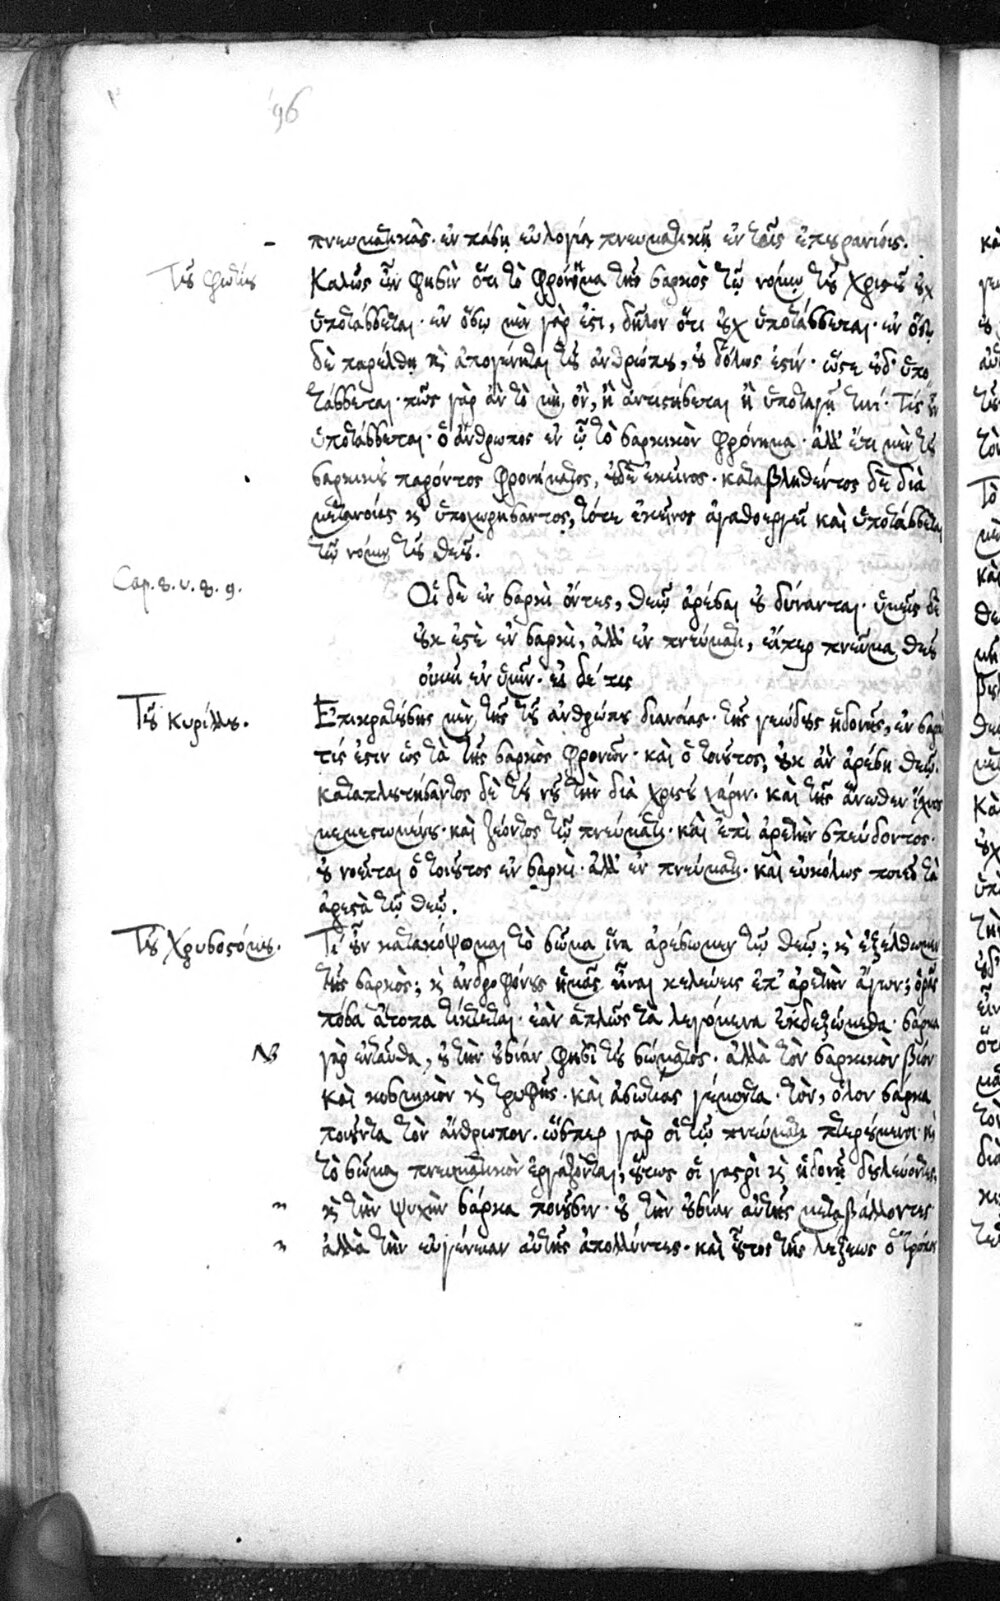 96
πνευματικάς· ἐν πάσῃ εὐλογίᾳ πνευματικῇ ἐν τοῖς ἐπουρανίοις.
Τοῦ Φωτίου Καλῶς οὖν φησὶν ὅτι τὸ φρόνημα τῆς σαρκὸς τῷ νόμῳ τοῦ Χριστοῦ οὐχ
ὑποτάσσεται· ἐν ὅσῳ μὲν γάρ ἐστι, δῆλον ὅτι οὐχ ὑποτάσσεται· ἐν ὅσῳ
δὲ παρέλθῃ κ̀ ἀπογένηται τοῦ ἀνθρώπου, οὐδόλως ἐστίν· ὥστε οὐδ' ὑπο
τάσσεται· πῶς γὰρ ἂν τὸ μὴ ὄν, ἢ ἀντιστήσεται ἢ ὑποταγῇ τινί· Τίς οὖν
ὑποτάσσεται· ὁ ἄνθρωπος ἐν ᾧ τὸ σαρκικὸν φρόνημα· ἀλλ' ἔτι μὲν τοῦ
σαρκικοῦ παρόντος φρονήματος, οὐδὲ ἐκεῖνος· καταβληθέντος δὲ διὰ
μετανοίας κ̀ ὑποχωρήσαντος, τότε ἐκεῖνος ἀγαθοεργεῖ καὶ ὑποτάσσεται
τῷ νόμῳ τοῦ Θεοῦ.
Cap. 8. v. 8. 9. Οἱ δὲ ἐν σαρκὶ ὄντες, Θεῷ ἀρέσαι οὐ δύνανται· ὑμεῖς δὲ
οὐκ ἐστὲ ἐν σαρκὶ, ἀλλ' ἐν πνεύματι, εἴπερ πνεῦμα Θεοῦ
οἰκεῖ ἐν ὑμῖν· εἰ δέ τις
Τοῦ Κυρίλλου. Ἐπικρατούσης μὲν τῆς τοῦ ἀνθρώπου διανοίας· τῆς γεώδους ἡδονῆς, ἐν σαρκί
τίς ἐστιν ὡς τὰ τῆς σαρκὸς φρονῶν· καὶ ὁ τοιοῦτος, οὐκ ἂν ἀρέσῃ Θεῷ.
καταπλουτήσαντος δὲ τοῦ νοῦ τὴν διὰ Χριστοῦ χάριν· καὶ τῆς ἄνωθεν
καὶ ζέοντος τῷ πνεύματι· καὶ ἐπὶ ἀρετὴν σπεύδοντος·
οὐ νοεῖται ὁ τοιοῦτος ἐν σαρκὶ· ἀλλ' ἐν πνεύματι· καὶ εὐκόλως ποιεῖ τὰ
ἀρεστὰ τῷ Θεῷ.
Τοῦ Χρυσοστόμου. Τί οὖν κατακόψομαι τὸ σῶμα ἵνα ἀρέσωμεν τῷ Θεῷ; κ̀ ἐξέλθωμεν
τῆς σαρκός; κ̀ ἀνδροφόνους ἡμᾶς εἶναι κελεύεις ἐπ' ἀρετὴν ἄγων; ὁρᾷς
πόσα ἄτοπα τίκτεται· ἐὰν ἁπλῶς τὰ λεγόμενα ἐκδεξώμεθα· σάρκα
NB γὰρ ἐνταῦθα, οὐ τὴν οὐσίαν φησὶ τοῦ σώματος· ἀλλὰ τὸν σαρκικὸν βίον
καὶ κοσμικὸν κ̀ τρυφῆς· καὶ ἀσωτίας γέμοντα· τὸν, ὅλον σάρκα
ποιοῦντα τὸν ἄνθρωπον. ὥσπερ γὰρ οἱ τῷ πνεύματι πτερούμενοι κ̀
τὸ σῶμα πνευματικὸν ἐργάζονται, οὕτως οἱ γαστρὶ κ̀ ἡδονῇ δουλεύοντες,
" κ̀ τὴν ψυχὴν σάρκα ποιοῦσιν· οὐ τὴν οὐσίαν αὐτῆς μεταβάλλοντες
" ἀλλὰ τὴν εὐγένειαν αὐτῆς ἀπολλύντες· καὶ οὗτος τῆς λέξεως ὁ τρόπος